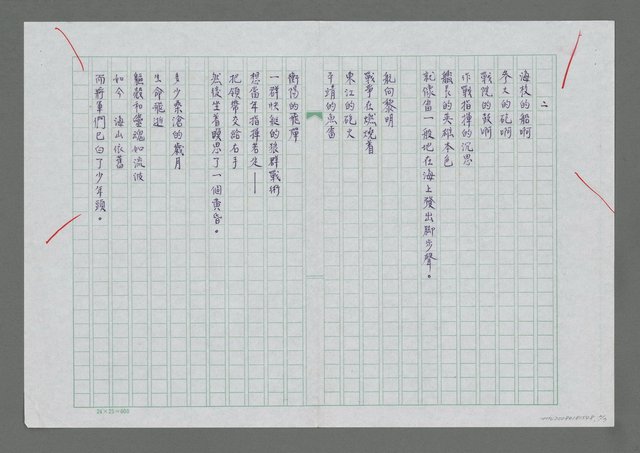 二
海校的船啊
參大的砲啊
戰院的鼓啊
作戰指揮的沉思
艦長的英雄本色
就像雷一般地在海上發出腳步聲。
航向黎明
戰爭在燃燒着
東江的砲火
平靖的魚雷
衡陽的飛彈
一群快艇的狼群戰術
想當年指揮若定——
把領帶交給右手
然後坐着瞑思了一個黃昏。
多少桑滄的歲月
生命飛逝
軀殼和靈魂如流波
如今 海山依舊
而將軍們已白了少年頭。
24×25=600